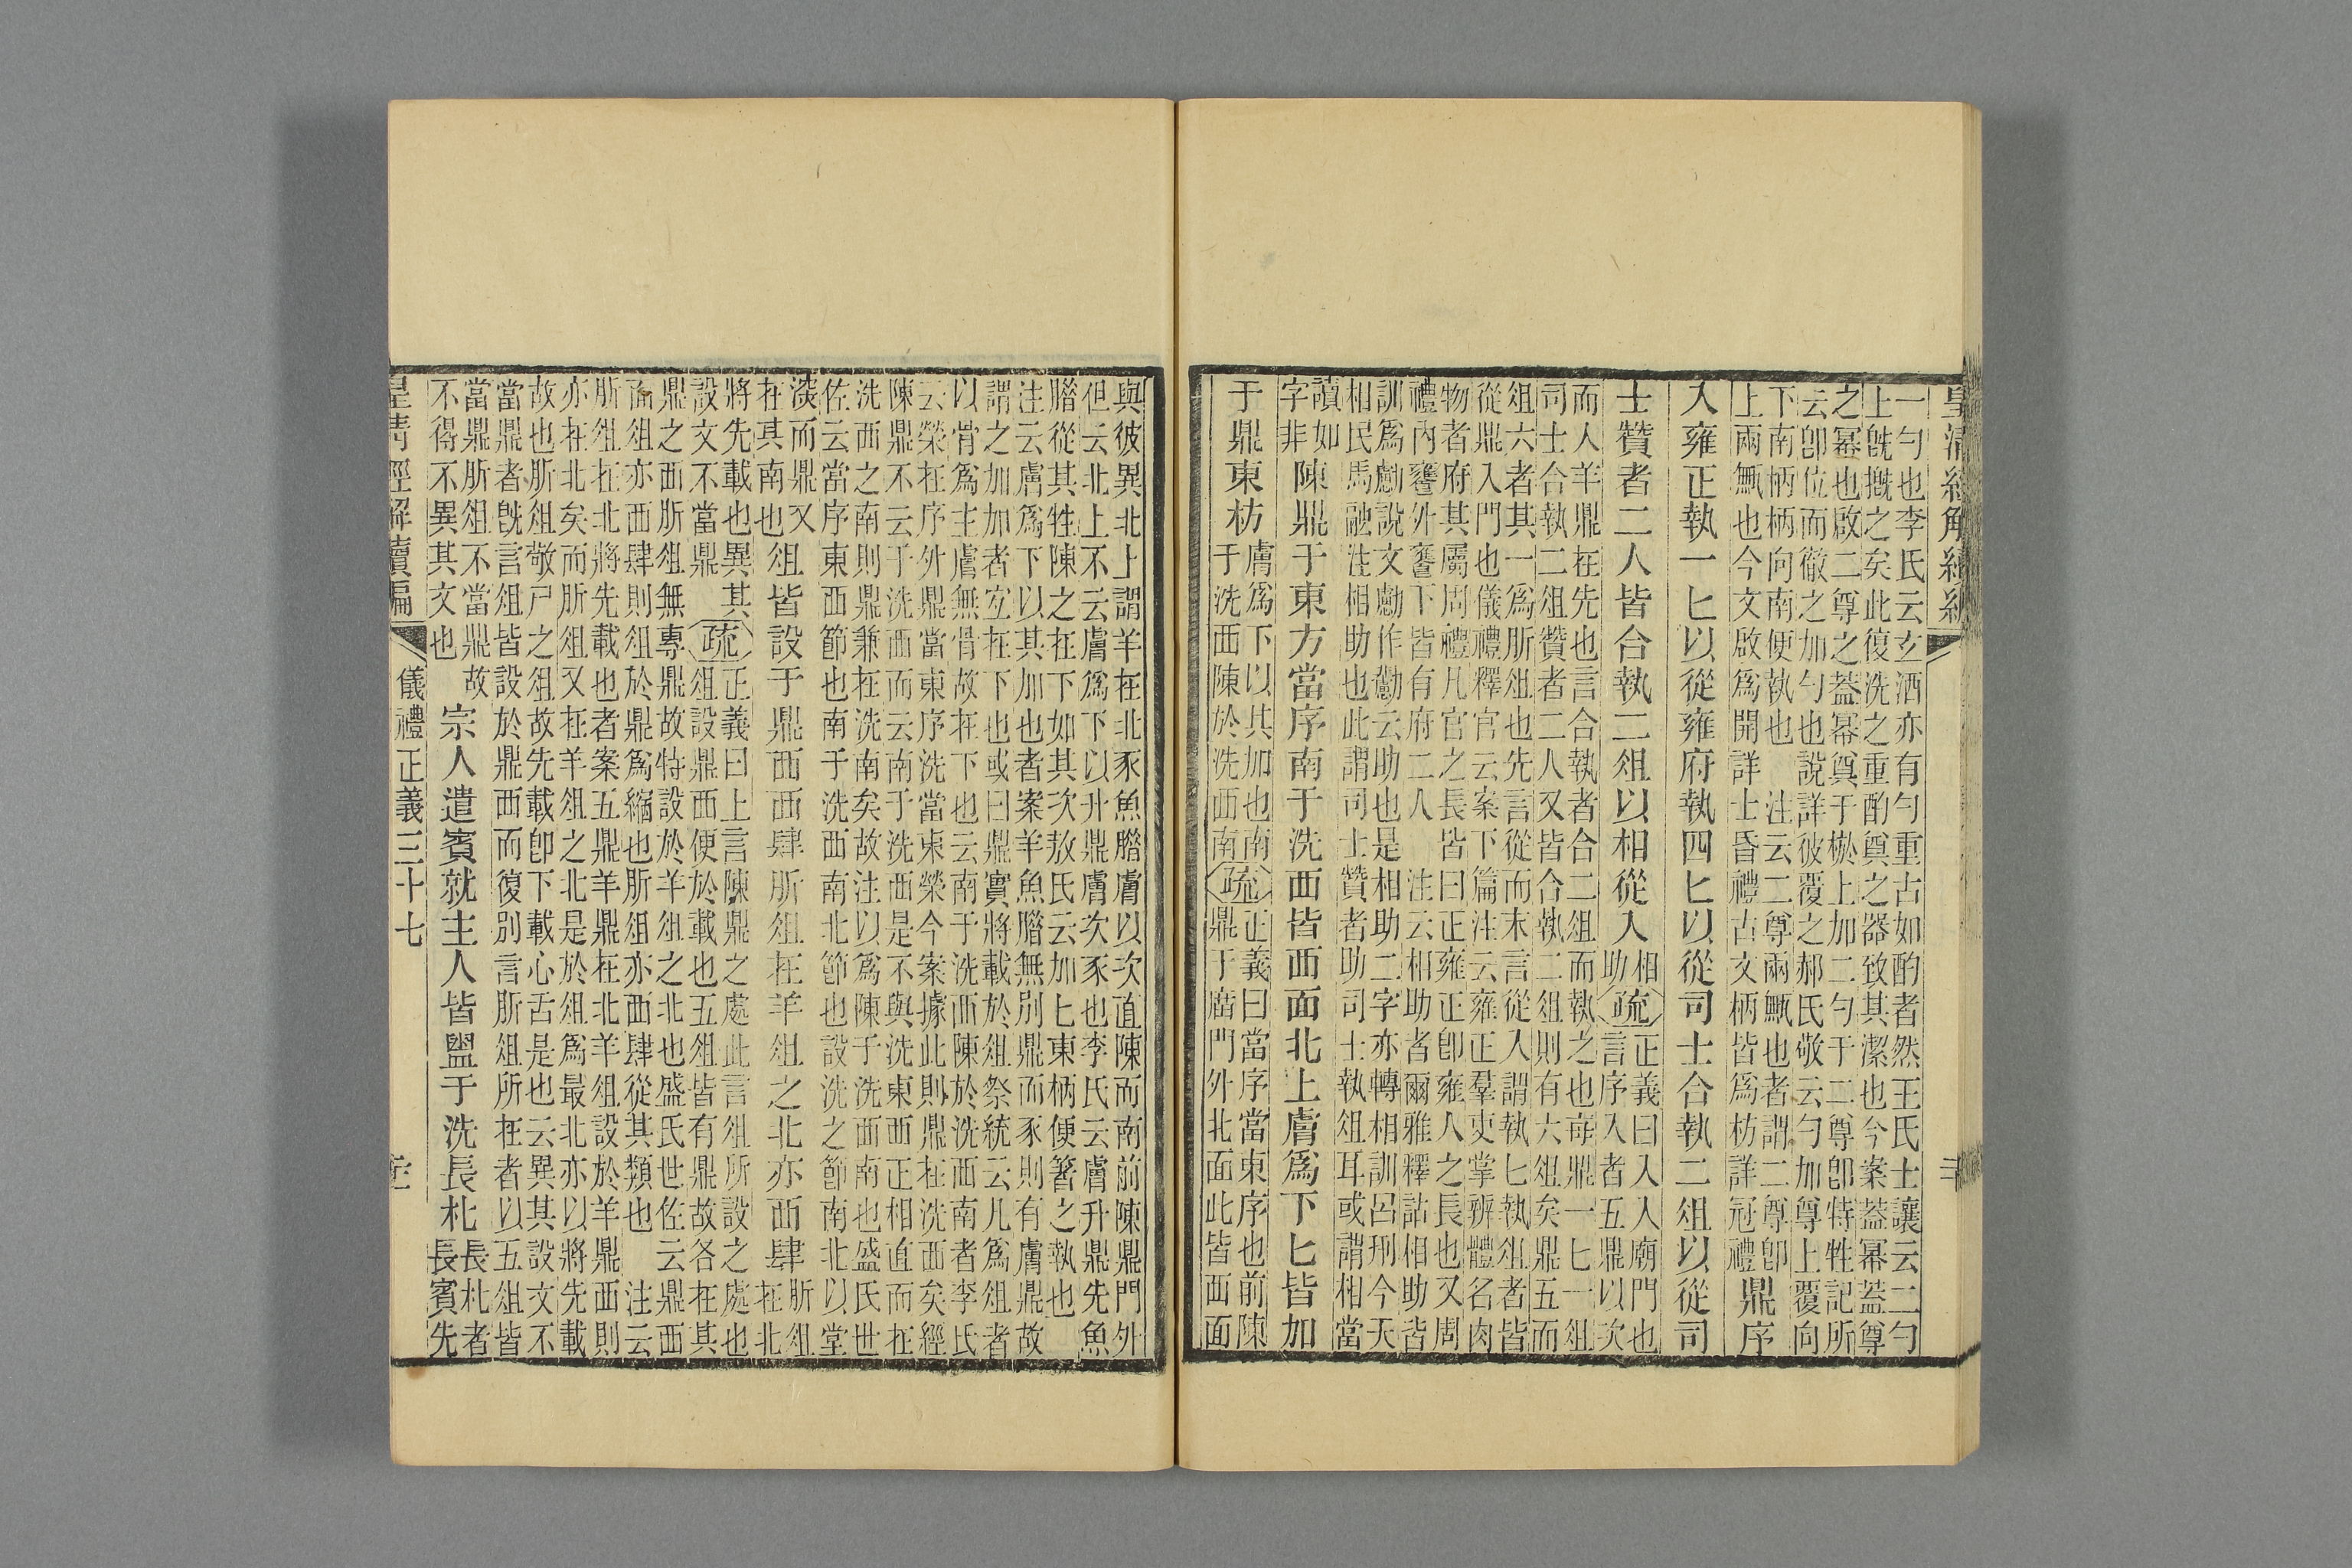 皇清經解續編
一勺也李氏云玄酒亦有勺重古如酌者然王氏士讓云二勺
上旣摡之矣此復洗之重酌奠之器致其潔也今案蓋冪蓋尊
之冪也啟二尊之蓋冪奠于棜上加二勺于二尊卽特牲記所
云卽位而徹之加勺也說詳彼覆之郝氏敬云勺加尊上覆向
下南柄柄向南便執也 注云二尊兩甒也者謂二尊卽
上兩甒也今文啟爲開詳士昏禮古文柄皆爲枋詳冠禮
鼎序
入雍正執一匕以從雍府執四匕以從司士合執二俎以從司
士贊者二人皆合執二俎以相從入
相
助
疏
正義曰入入廟門也
言序入者五鼎以次
而人羊鼎在先也言合執者合二俎而執之也每鼎一匕一俎
司士合執二俎贊者二人又皆合執二俎則有六俎矣鼎五而
俎六者其一爲肵俎也先言從而末言從入謂執匕執俎者皆
從鼎入門也儀禮釋官云案下篇注云雍正羣吏掌辨體名肉
物者府其屬周禮凡官之長皆曰正雍正卽雍人之長也又周
禮內饔外饔下皆有府二人 注云相助者爾雅釋詁相助皆
訓爲勴說文勴作勴云助也是相助二字亦轉相訓呂刑今天
相民馬融注相助也此謂司士贊者助司士執俎耳或謂相當
讀如
字非
陳鼎于東方當序南于洗西皆西面北上膚爲下匕皆加
于鼎東枋
膚爲下以其加也南
于洗西陳於洗西南
疏
正義曰當序當東序也前陳
鼎于廟門外北面此皆西面
與彼異北上謂羊在北豕魚腊膚以次直陳而南前陳鼎門外
但云北上不云膚爲下以升鼎膚次豕也李氏云膚升鼎先魚
腊從其牲陳之在下如其次敖氏云加匕東柄便箸之執也
注云膚爲下以其加也者案羊魚腊無別鼎而豕則有膚鼎故
謂之加加者宜在下也或曰鼎實將載於俎祭統云凡爲俎者
以骨爲主膚無骨故在下也云南于洗西陳於洗西南者李氏
云榮在序外鼎當東序洗當東榮今案據此則鼎在洗西矣經
陳鼎不云于洗西而云南于洗西是不與洗東西正相直而在
洗西之南則鼎兼在洗南矣故注以爲陳于洗西南也盛氏世
佐云當序東西節也南于洗西南北節也設洗之節南北以堂
深而鼎又
在其南也
俎皆設于鼎西西肆肵俎在羊俎之北亦西肆
肵俎
在北
將先載也異其
設文不當鼎
疏
正義曰上言陳鼎之處此言俎所設之處也
俎設鼎西便於載也五俎皆有鼎故各在其
鼎之西肵俎無專鼎故特設於羊俎之北也盛氏世佐云鼎西
面俎亦西肆則俎於鼎爲縮也肵俎亦西肆從其類也 注云
肵俎在北將先載也者案五鼎羊鼎在北羊俎設於羊鼎西則
亦在北矣而肵俎又在羊俎之北是於俎爲最北亦以將先載
故也肵俎敬尸之俎故先載卽下載心舌是也云異其設文不
當鼎者旣言俎皆設於鼎西而復別言肵俎所在者以五俎皆
當鼎肵俎不當鼎故
不得不異其文也
宗人遣賓就主人皆盥于洗長朼
長朼者
長賓先
皇清經解續編 儀禮正義三十七